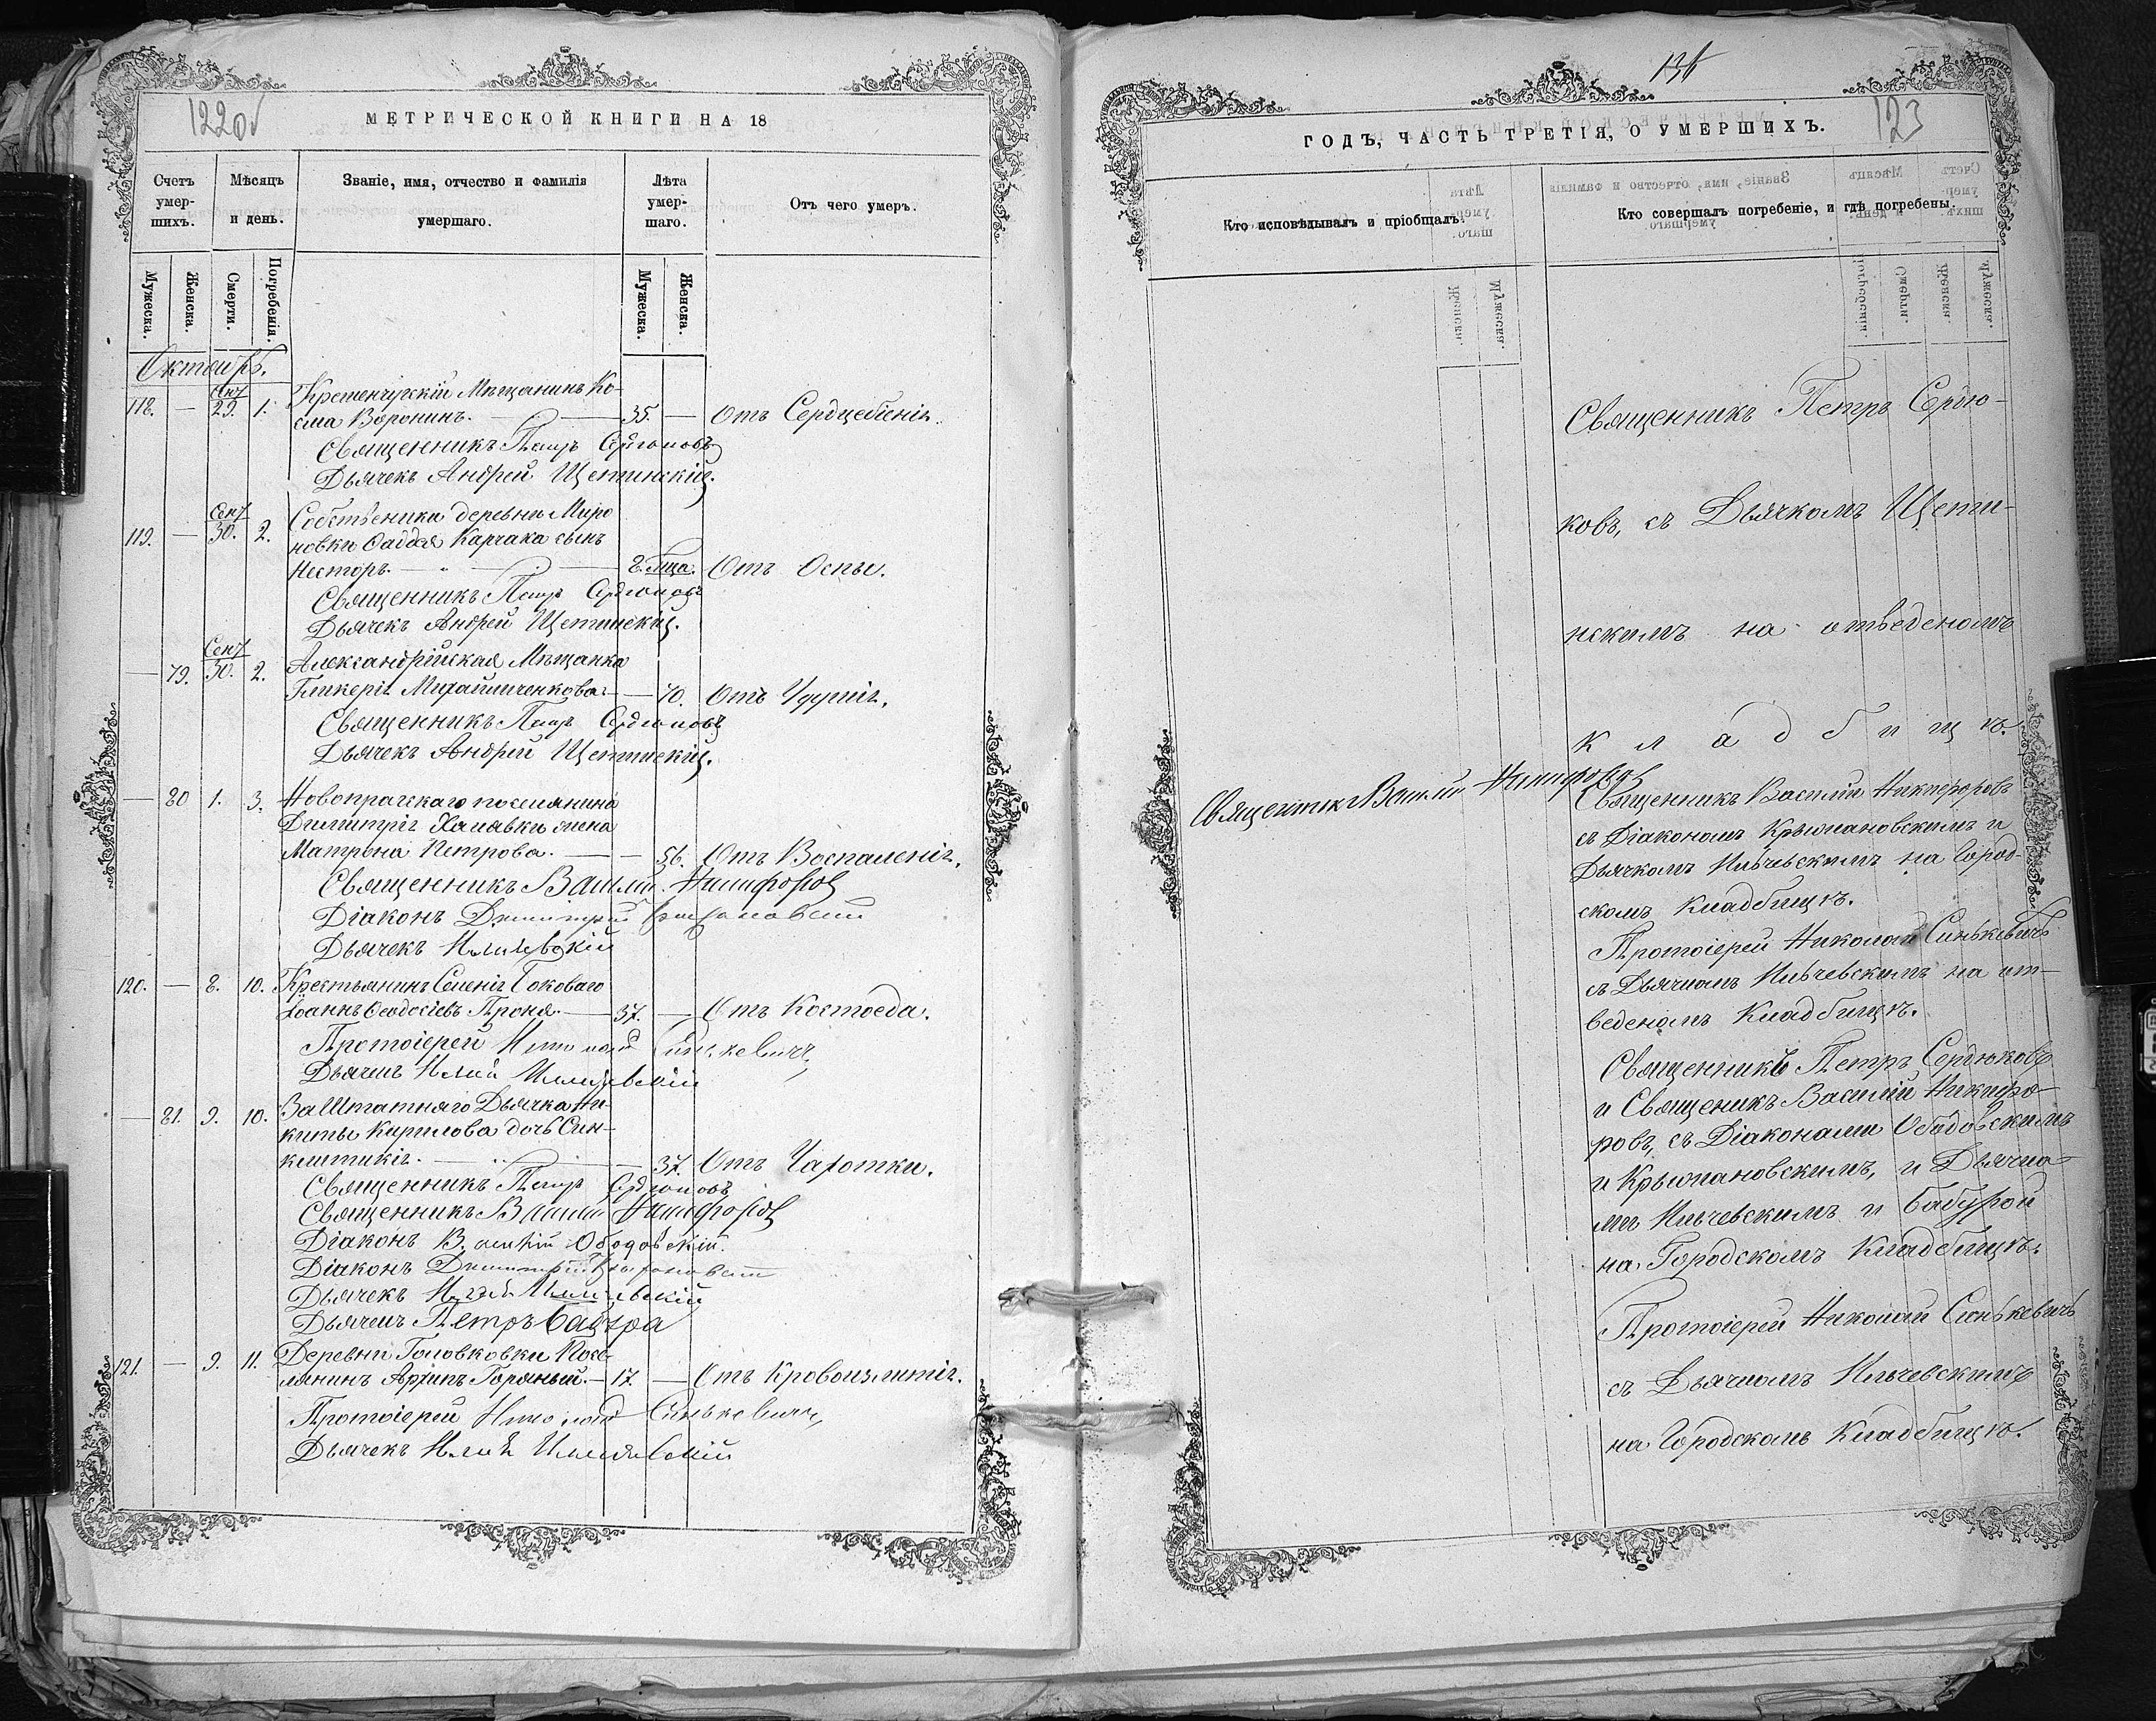 122об
МЕТРИЧЕСКОЙ КНИГИ НА 18
Счетъ умер-шихъ.
Мѣсяцъ и день.
Званіе, имя, отчество и фамилія умершаго.
Лѣта умер-шаго.
Отъ чего умеръ.
Мужеска.
Женска.
Смерти.
Погребенія.
Мужеска.
Женска.
Октябрь.
118. — Сен/29. 1. Кременчугскій Мѣщанинъ Ко-
сма Воронинъ. — 35. — Отъ Сердцебіенія.
Священникъ Петръ Сердюковъ
Дьячекъ Андрей Щетинскій.
119. — Сен/30. 2. Собственика деревни Миро
новки Фаддея Карчака сынъ
Несторъ. — 8. мца. Отъ Оспы.
Священникъ Петръ Сердюковъ
Дьячекъ Андрей Щетинскій.
— 79. Сен/30. 2. Александрійская Мѣщанка
Гликерія Михайличенкова — 70. Отъ Удушія.
Священникъ Петръ Сердюковъ
Дьячекъ Андрей Щетинскій.
— 80 1. 3. Новопражскаго поселянина
Димитрія Халявки жена
Матрона Петрова. — 56. Отъ Воспаленія.
Священникъ Василій Никифоровъ
Діаконъ Димитрій Крыжановскій
Дьячекъ Ильчевскій
120. — 8. 10. Крестьянинъ Селенія Боковаго
Іоаннъ Ѳеодосіевъ Проня. — 37. — Отъ Костоеда.
Протоіерей Николай Синькевичъ
Дьячекъ Илія Ильчевскій
— 81. 9. 10. Заштатнаго Дьячка Ни-
киты Кирилова дочь Син-
клитикія. — 37. Отъ Чахотки.
Священникъ Петръ Сердюковъ
Священникъ Василій Никифоровъ
Діаконъ Ободовскій.
Діаконъ Димитрій Крыжановскій
Дьячекъ Илія Ильчевскій
Дьячекъ Петръ Бабура
121. — 9. 11. Деревни Головковки Посе-
лянинъ Архипъ Горяный. — 17. — Отъ Кровоизлитія.
Протоіерей Николай Синькевичъ
Дьячекъ Илія Ильчевскій
123
ГОДЪ, ЧАСТЬ ТРЕТІЯ, О УМЕРШИХЪ.
Кто исповѣдывалъ и пріобщалъ.
Кто совершалъ погребеніе, и гдѣ погребены.
Священникъ Петръ Сердю-
ковъ, съ Дьячкомъ Щети-
нскимъ на отведеномъ
кладбищѣ.
Священникъ Василій Никифоровъ
Священникъ Василій Никифоровъ
съ Діакономъ Крыжановскимъ и
Дьячкомъ Ильчевскимъ на Город-
скомъ Кладбищѣ.
Протоіерей Николай Синькевичъ
съ Дьячкомъ Ильчевскимъ на от-
веденомъ Кладбищѣ.
Священникъ Петръ Сердюковъ
и Священикъ Василій Никифо-
ровъ, съ Діаконами Ободовскимъ
и Крыжановскимъ, и Дьячка-
ми Ильчевскимъ и Бабурой
на Городскомъ Кладбищѣ.
Протоіерей Николай Синькевичъ
съ Дьячкомъ Ильчевскимъ
на Городскомъ Кладбищѣ.